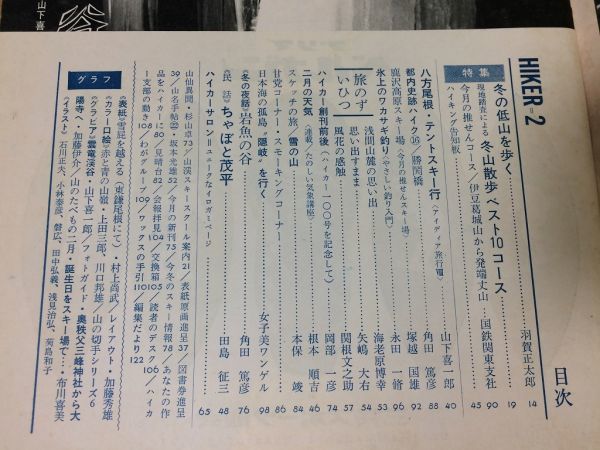 HIKER=2
目次
特集
冬の低山を歩く……羽賀正太郎 14
現地踏査による 冬山散歩 ベスト10コース…… 19
今月の推せんコース・伊豆葛城山から発端丈山……国鉄関東支社 90
ハイキング告知板…… 45
八方尾根・テントスキー行〈アイディア旅行⑭〉……山下喜一郎 40
都内史跡ハイク⑯ 勝鬨橋……角田 篤彦 88
鹿沢高原スキー場〈今月の推せんスキー場〉……塚越 国雄 92
氷上のワカサギ釣り〈やさしい釣り入門〉……永田 一脩 96
旅のずいひつ
浅間山麓の思い出……海老原博幸 53
思い出すまま……矢嶋 大右 54
風花の感触……関根文之助 57
ハイカー創刊前後〈ハイカー一〇〇号を記念して〉……岡部 一彦 74
二月の天気〈連載/たのしい気象講座〉……根本 順吉 46
スケッチの旅/雪の山……本保 竣 84
甘党コーナー・スモーキングコーナー…… 86
日本海の孤島“隠岐”を行く……女子美ワンゲル 98
〈冬の夜話〉岩魚の谷……角田 篤彦 76
〈民話〉ちゃぼと茂平……田島 征三 48
ハイカーサロン=ユニークなイロガーページ…… 65
山仙異聞・杉山卓73/山渓スキースクール案内21/表紙原画進呈37/図書券進呈
39/山名手帖㉒・坂本光雄52/今月の新刊75/今冬のスキー情報78/あなたの作
品をハイカーに80/見晴台82/会報拝見104/交換箱105/読者のデスク106/ハイカ
ー支部の動き108/わがグループ109/ワックスの手引110/編集だより122
グラフ
〈表紙〉雪庇を越える(東鎌尾根にて)・村上尚武/レイアウト・加藤秀雄
〈カラー口絵〉赤と青の山嶺・上田三郎、川口邦雄/山の切手シリーズ6
〈グラビア〉雲竜渓谷・山下喜一郎/フォトガイド・奥秩父三峰神社から大
陽寺へ・加藤伊介/山のたべもの二月・誕生日をスキー場で…・布川喜美
〈イラスト〉石川正夫、小林泰彦、磐広、田中弘義、浅見治弘、菊島和子
山下喜